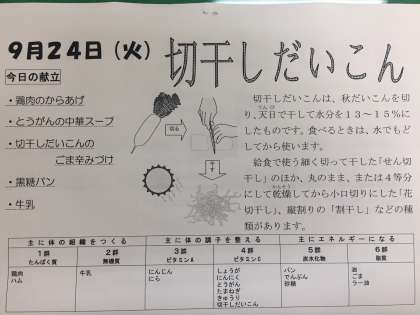 9月24日（火）
切干しだいこん
今日の献立
・鶏肉のからあげ
・とうがんの中華スープ
・切干しだいこんの
ごま辛みづけ
・黒糖パン
・牛乳
切る
干す
切干しだいこんは、秋だいこんを切
り、天日で干して水分を13～15％に
したものです。食べるときは、水でもど
してから使います。
給食で使う細く切って干した「せん切
干し」のほか、丸のまま、または4等分
にして乾燥してから小口切りにした「花
切干し」、縦割りの「割干し」などの種
類があります。
主に体の組織をつくる 主に体の調子を整える 主にエネルギーになる
1群 2群 3群 4群 5群 6群
たんぱく質 無機質 ビタミンA ビタミンC 炭水化物 脂質
鶏肉 牛乳 にんじん しょうが パン 油
ハム にら にんにく でんぷん ごま
とうがん 砂糖 ラー油
たまねぎ
きゅうり
切干しだいこん